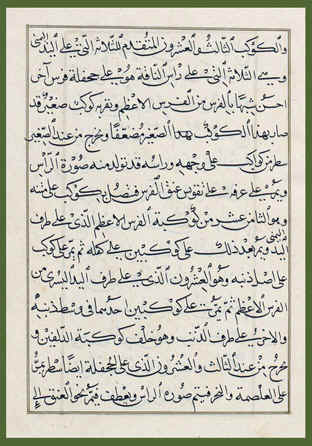 والكوكب الثالث والعشرون المتقدم للثلاثة التى على اليد اليمنى
وسم الثلاثة التى على رأس الناقة هو على جحفلة فرس آخر
احسن شبهًا بالفرس من الفرس الاعظم وبقربه كوكب صغير قد
صار بهذا الكوكب الصغير مضعفًا ويخرج من عند الصغير
سطر من كواكب على وجهه ورأسه قد تولد منه صورة الرأس
ويمر على عرفه على تقوس عنق الفرس فيتصل بكوكب على متنه
وهو الثامن عشر من كوكبة الفرس الاعظم الذى على طرف
اليد اليمنى ويمر بعد ذلك على كوكبين على كفله ثم يمر على كوكب
على اصل ذنبه وهو العشرون الذى على طرف اليد اليسرى من
الفرس الاعظم ثم يمر على كوكبين احدهما فى وسط ذنبه
والآخر على طرف الذنب وهو خلف كوكبة الدلفين و
يخرج من عند الثالث والعشرون الذى على الجحفلة ايضًا سطر يمر
على الغلصمة والنحر فيتم صورة الرأس وينعطف فيمر نحو العنق الى